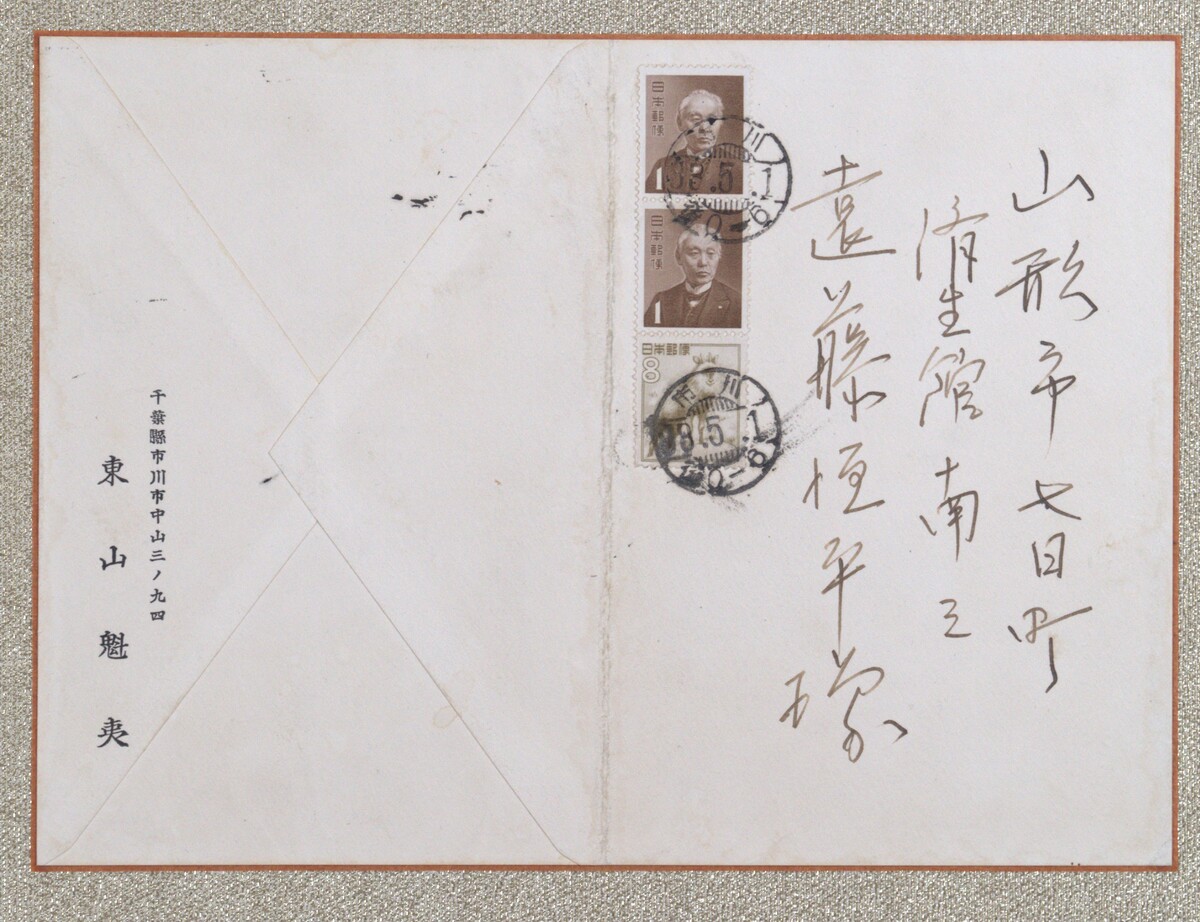 山形市七日町
済生館南三
遠藤恒平様
日本郵便
1
日本郵便
1
日本郵便
8
市川
38.5.1
0-6
千葉縣市川市中山三ノ九四
東山魁夷